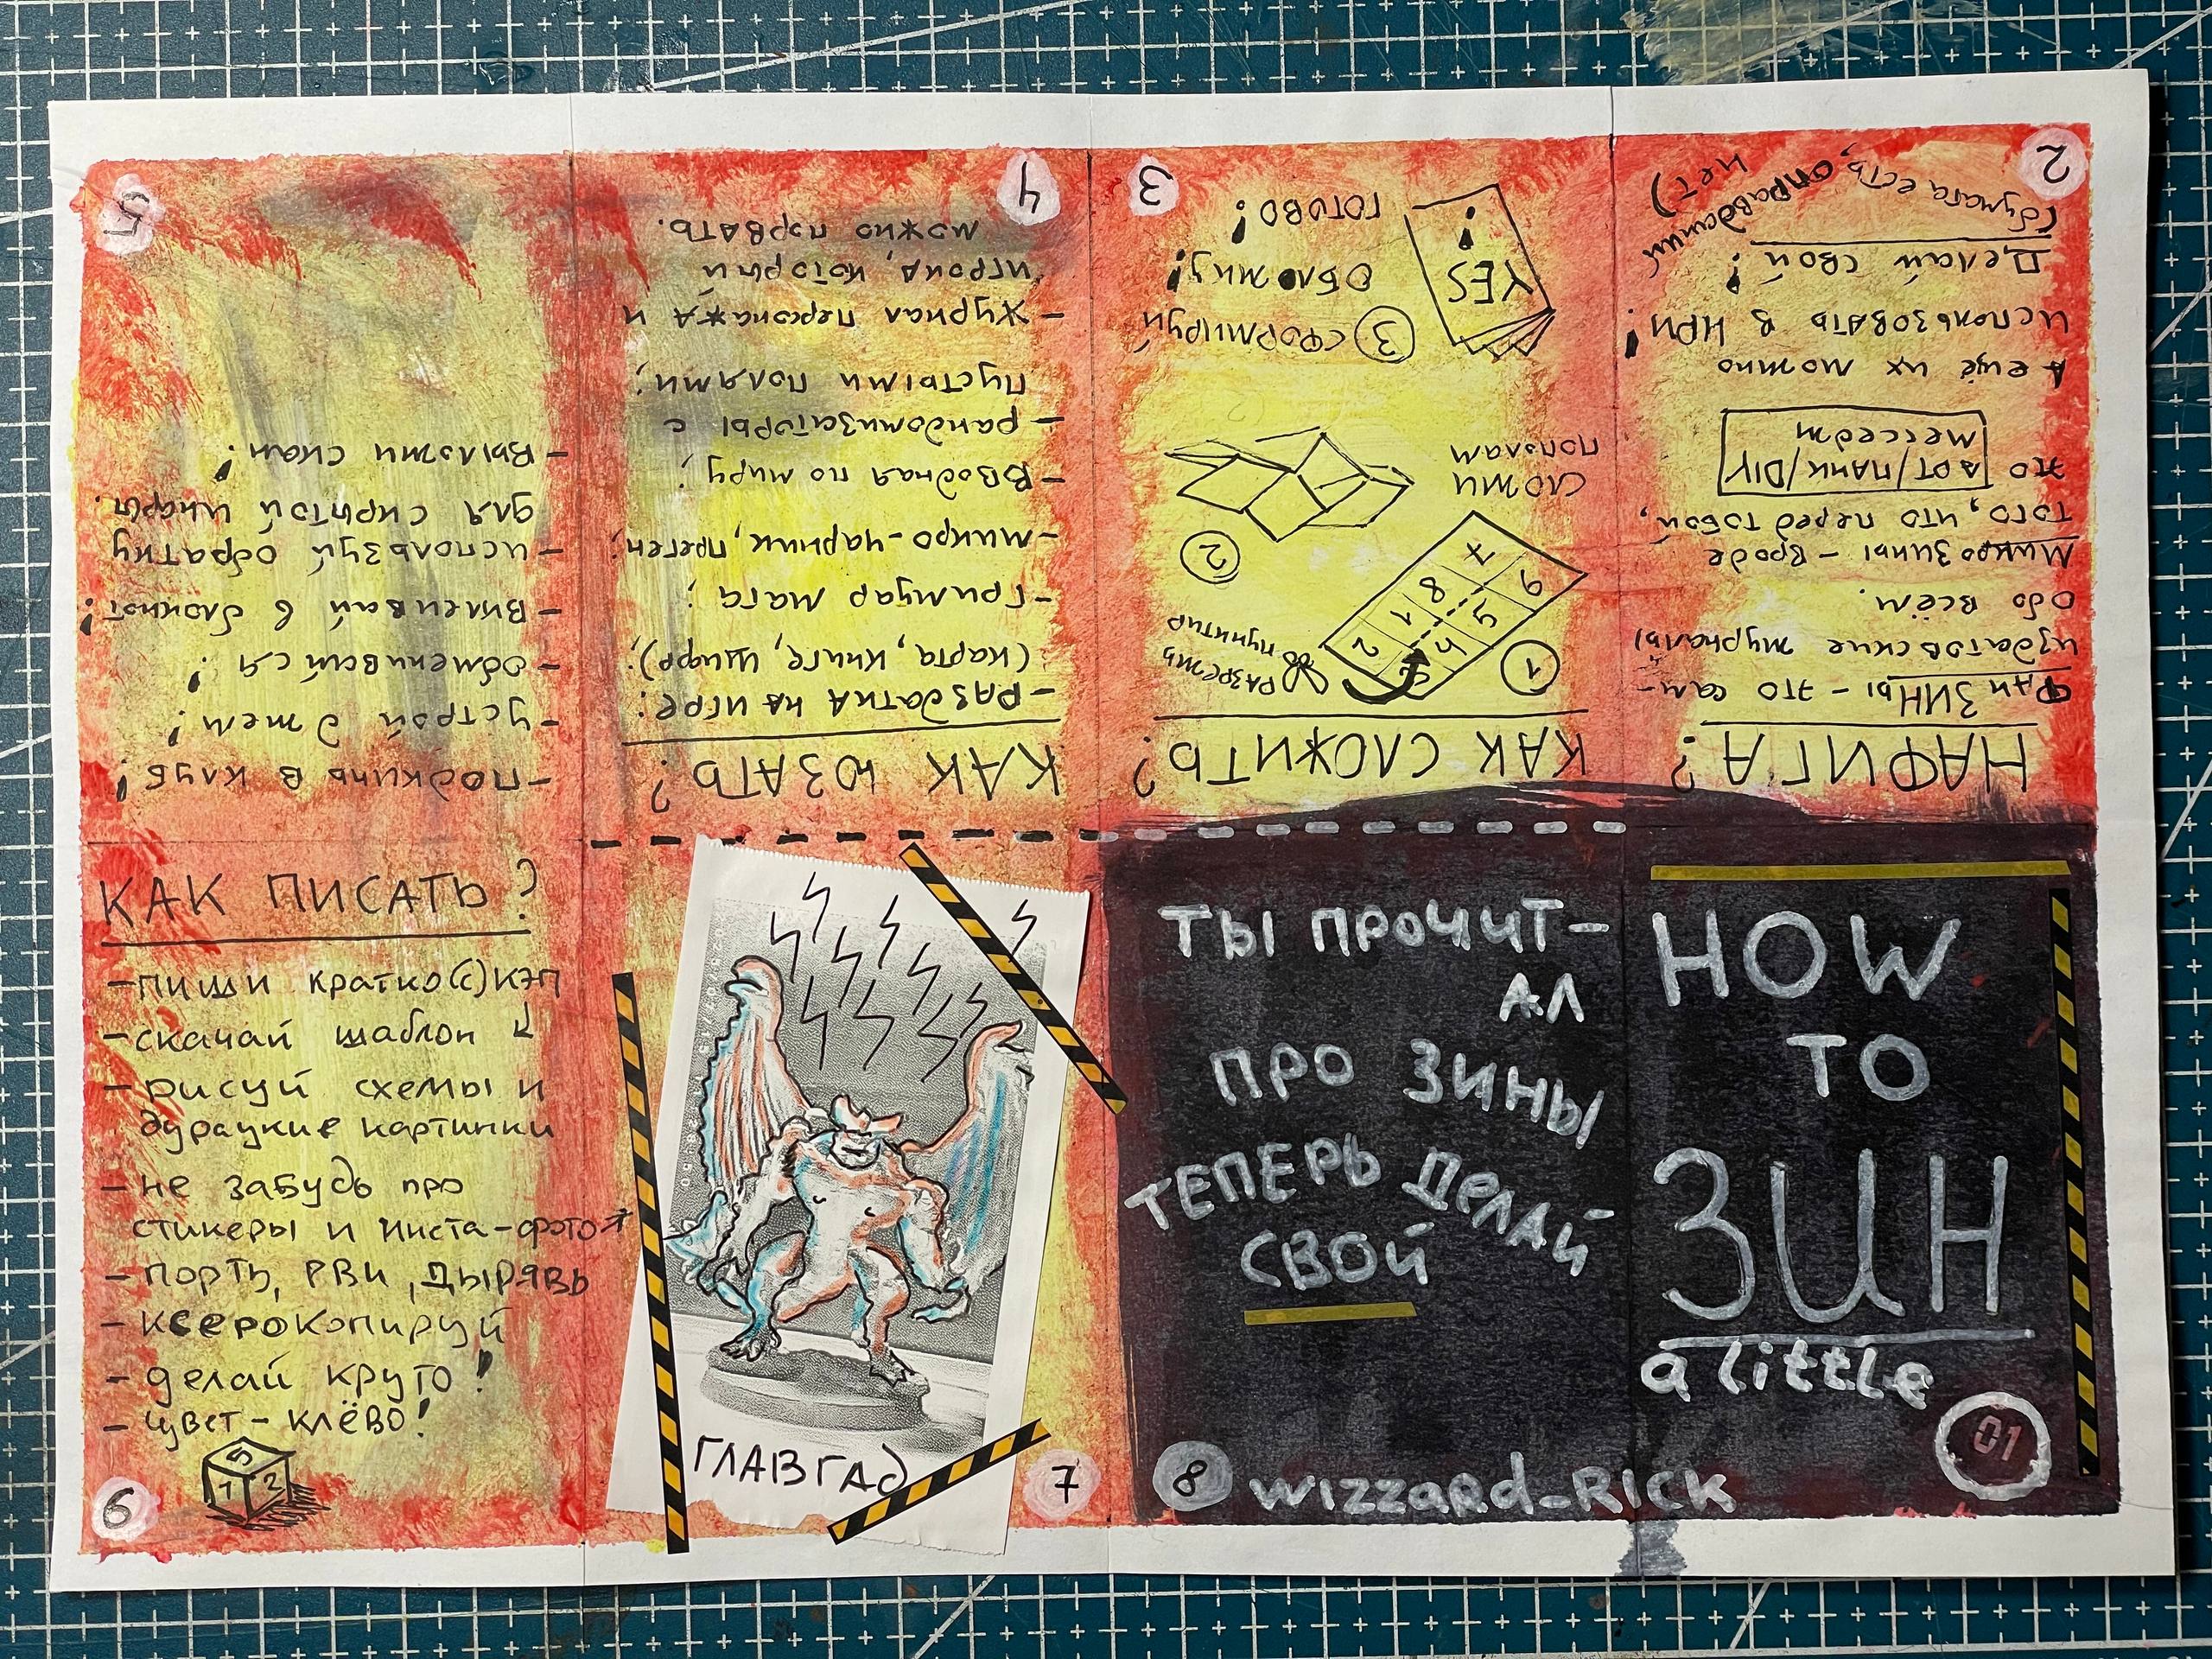 HOW
TO
ЗИН
a little
01
НАФИГА?
Фан ЗИНЫ - это сам-
издатовские журналы
обо всём.
Микрозины - вроде
того, что перед тобой,
это АРТ/ПАНК/DIY
месседж
А ещё их можно
использовать в НРИ!
Делай свой!
(бумага есть, оправданий
нет)
2
КАК СЛОЖИТЬ?
1
РАЗРЕЖЬ
ПУНКТИР
2
3
4
5
6
1
8
7
2
СЛОЖИ
ПОПОЛАМ
3 СФОРМИРУЙ
ОБЛОЖКУ!
ГОТОВО!
YES
!
3
КАК ЮЗАТЬ?
- РАЗдатка НА ИГРЕ:
(карта, книга, шифр);
- Гримуар мага;
- микро-чарник, преген;
- Вводная по миру;
- рандомизаторы с
пустыми полями;
- Журнал персонажа и
игрока, который
можно порвать.
4
- ПОДКИНЬ В КЛУБ!
- устрой джем!
- обменивайся!
- Вклеивай в блокнот!
- используй обратку
для скрытой инфы.
- Выложи скан!
5
КАК ПИСАТЬ?
- пиши кратко (с) КЭП
- скачай шаблон
- рисуй схемы и
дурацкие картинки
- не забудь про
стикеры и инста-фото
- порть, рви, дырявь
- ксерокопируй
- делай круто!
- цвет - клёво!
5
1 2
6
ГЛАВГАд
7
ТЫ ПРОЧИТ-
АЛ
ПРО ЗИНЫ
ТЕПЕРЬ ДЕЛАЙ
СВОЙ
8 wizzard_RICK